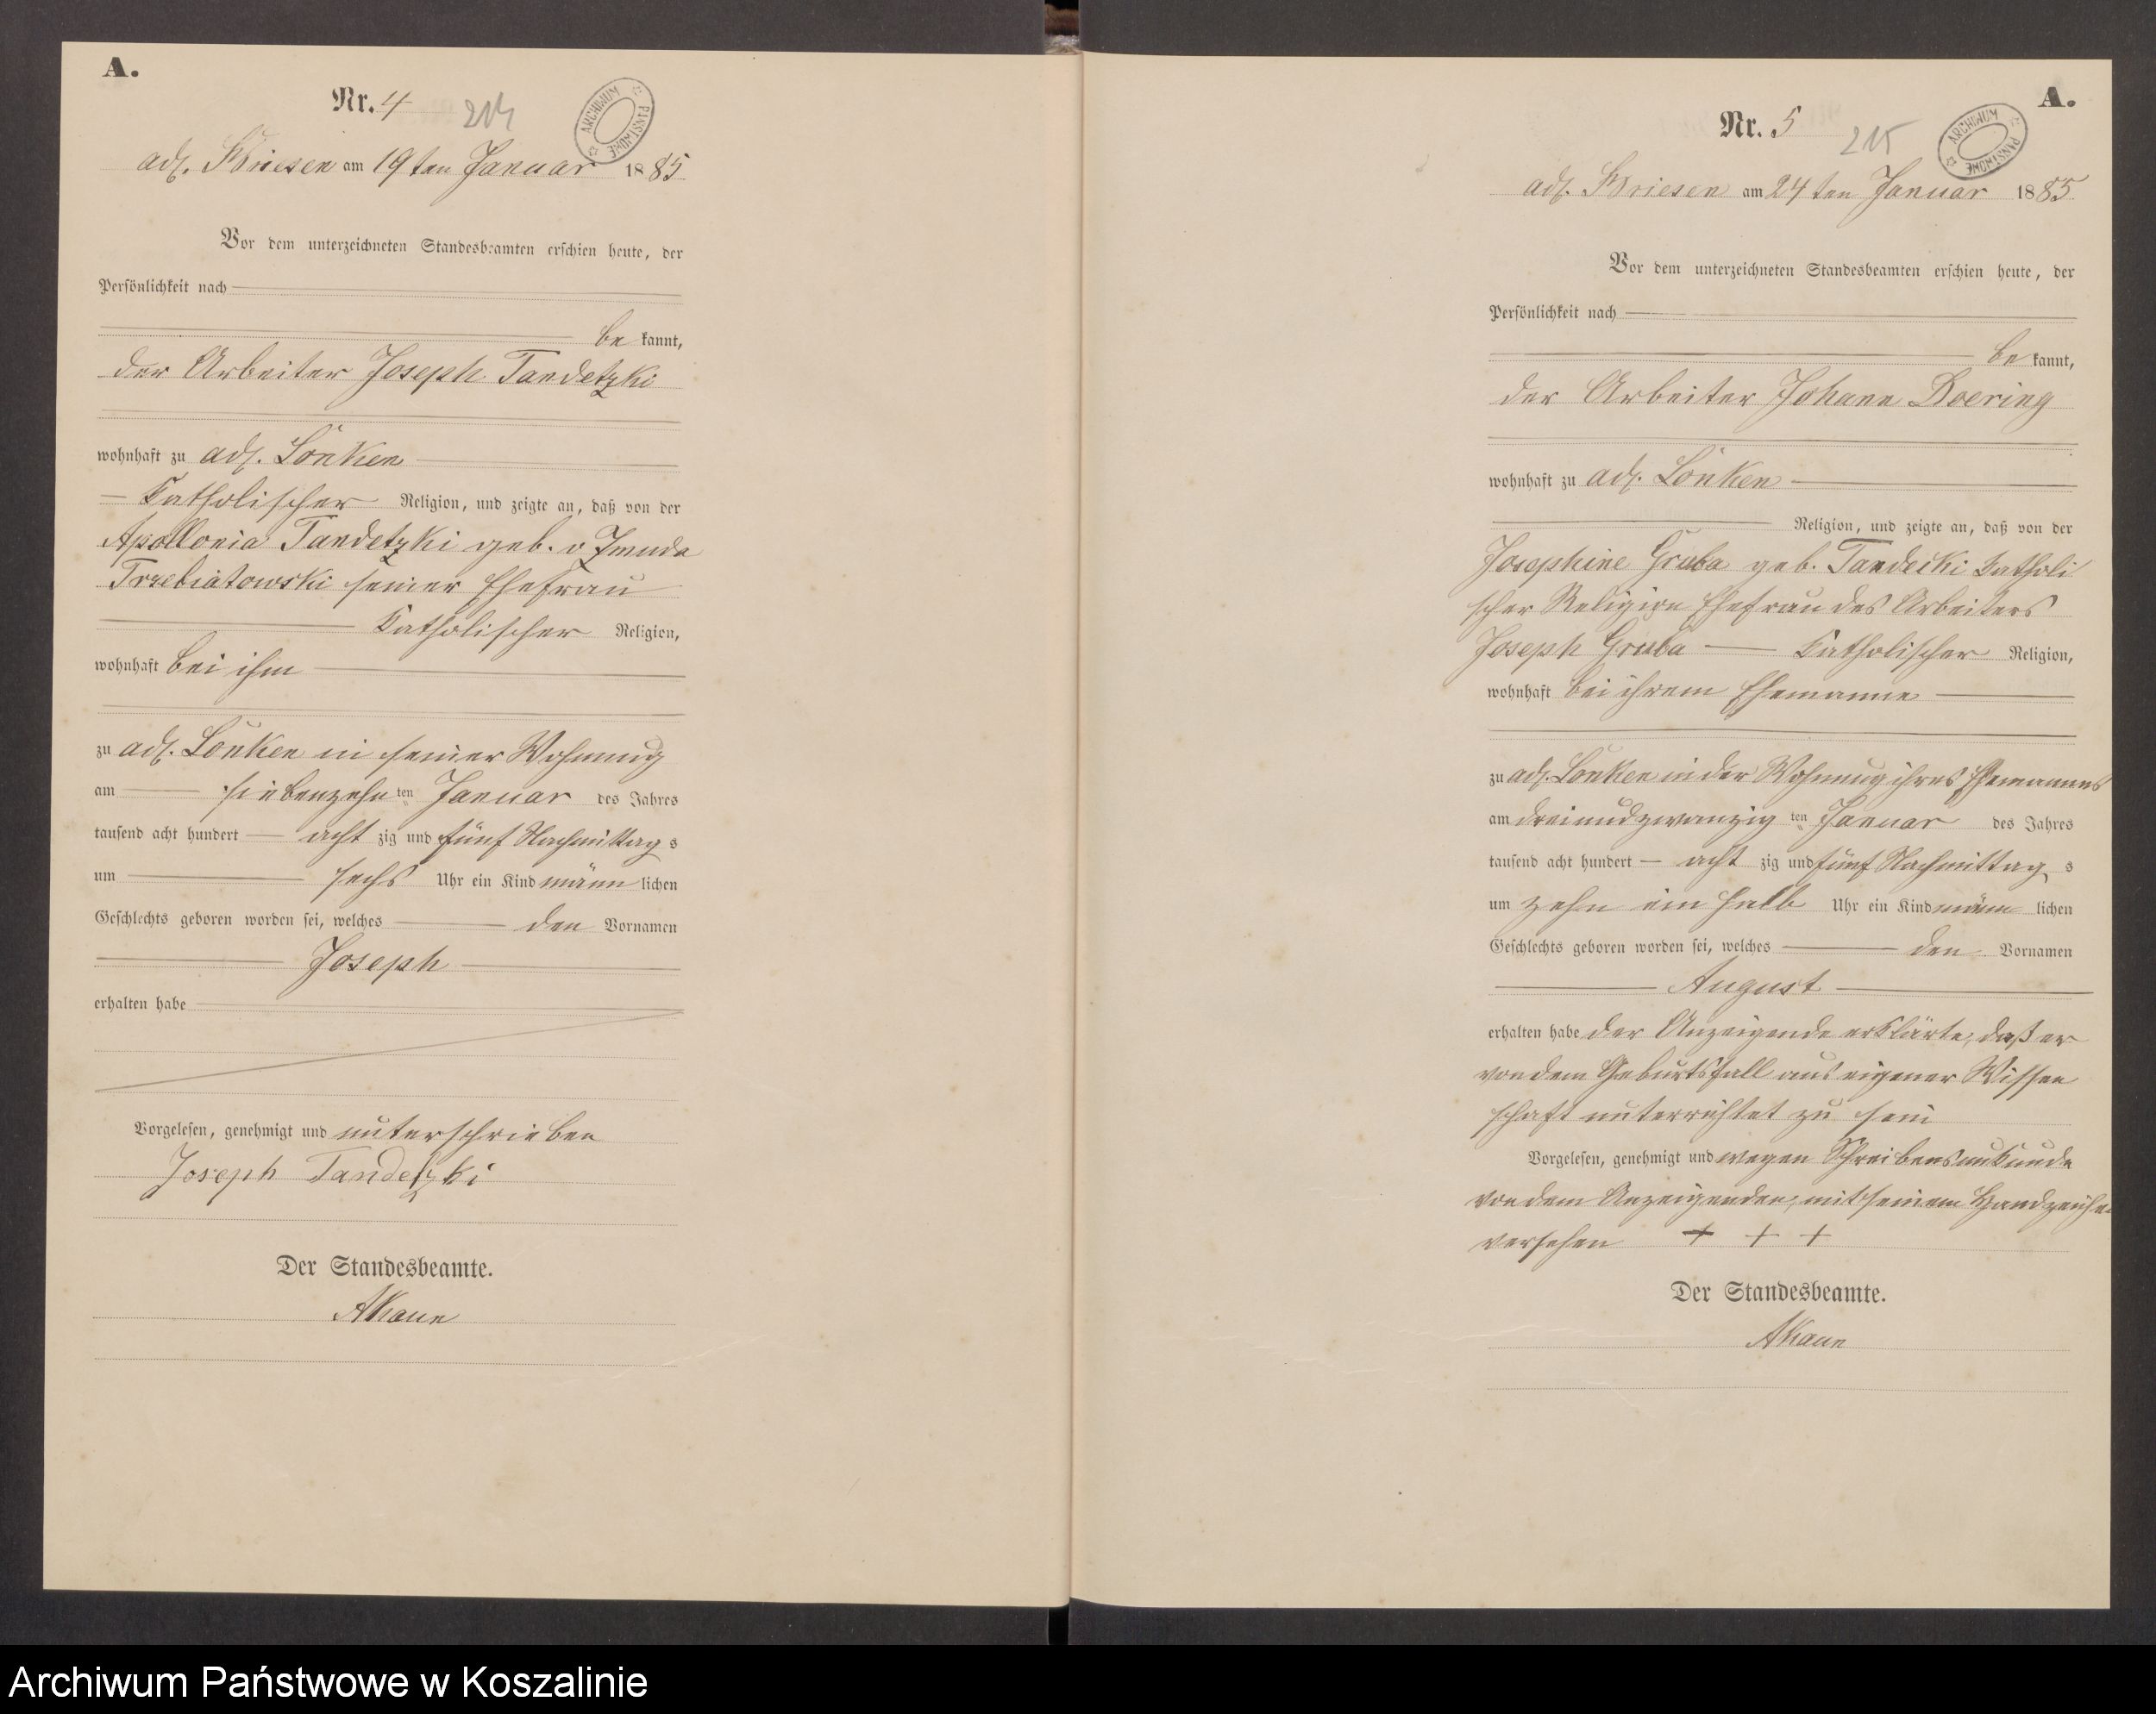 A.
Nr. 4
214
ARCHIWUM PAŃSTWOWE
adl. Briesen am 19ten Januar 1885
Vor dem unterzeichneten Standesbeamten erschien heute, der
Persönlichkeit nach
be kannt,
der Arbeiter Joseph Tandetzki
wohnhaft zu adl. Lonken
Katholischer Religion, und zeigte an, daß von der
Apollonia Tandetzki geb. v Zmuda
Trzebiatowski seiner Ehefrau
Katholischer Religion,
wohnhaft bei ihm
zu adl. Lonken in seiner Wohnung
am siebenzehn ten Januar des Jahres
tausend acht hundert acht zig und fünf Nachmittag s
um sechs Uhr ein Kind männ lichen
Geschlechts geboren worden sei, welches den Vornamen
Joseph
erhalten habe
Vorgelesen, genehmigt und unterschrieben
Joseph Tandetzki
Der Standesbeamte.
A.
Nr. 5
215
ARCHIWUM PAŃSTWOWE
adl. Briesen am 24ten Januar 1885
Vor dem unterzeichneten Standesbeamten erschien heute, der
Persönlichkeit nach
be kannt,
der Arbeiter Johann Doering
wohnhaft zu adl. Lonken
Religion, und zeigte an, daß von der
Josephine Gruba geb. Tandecki Katholi
scher Religion Ehefrau des Arbeiters
Joseph Gruba Katholischer Religion,
wohnhaft bei ihrem Ehemanne
zu adl. Lonken in der Wohnung ihres Ehemannes
am dreiundzwanzig ten Januar des Jahres
tausend acht hundert acht zig und fünf Nachmittag s
um zehn ein halb Uhr ein Kind männ lichen
Geschlechts geboren worden sei, welches den Vornamen
August
erhalten habe der Anzeigende erklärte, daß er
von dem Geburtsfall aus eigener Wissen
schaft unterrichtet zu sein
Vorgelesen, genehmigt und wegen Schreibensunkunde
von dem Anzeigenden, mit seinem Handzeichen
versehen + + +
Der Standesbeamte.
Archiwum Państwowe w Koszalinie